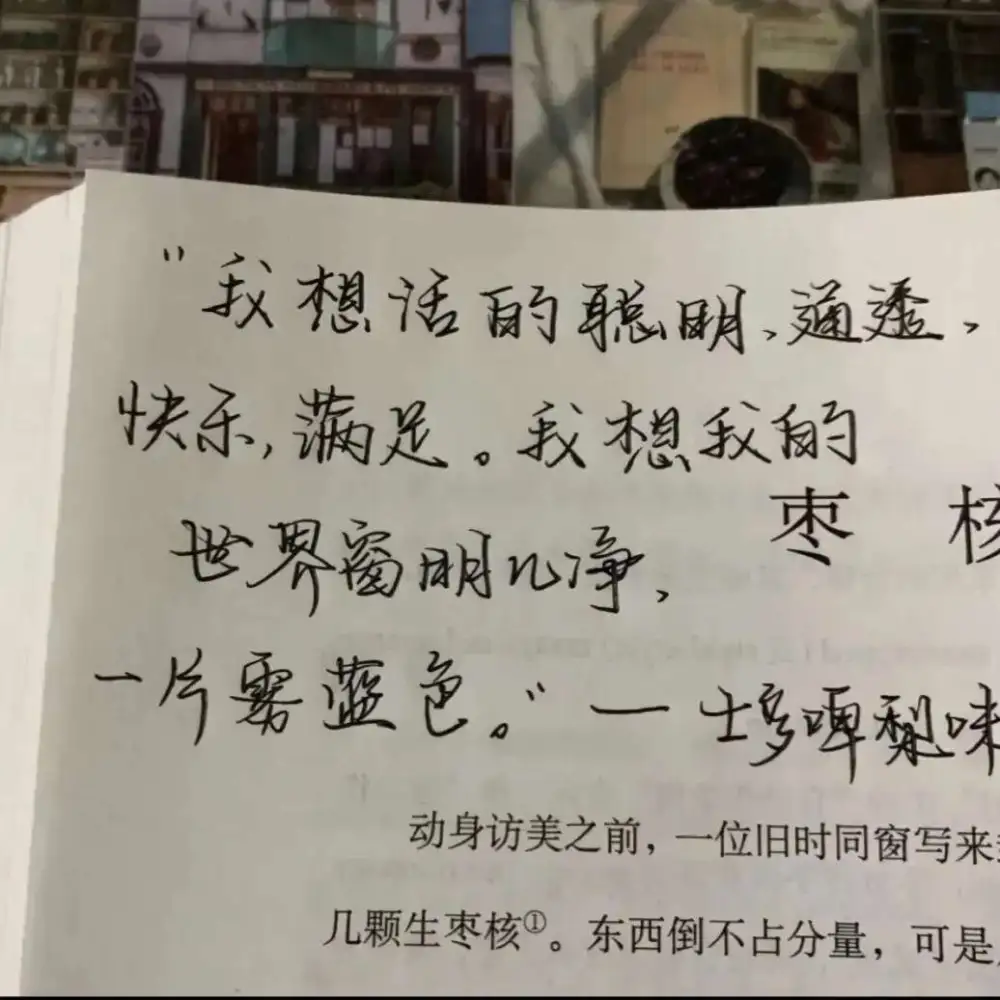 "我想活的聪明、通透,
快乐,满足。我想我的
世界窗明几净,
枣 核
一片雾蓝色。" 一 士多啤梨味
动身访美之前,一位旧时同窗写来
几颗生枣核①。东西倒不占分量,可是